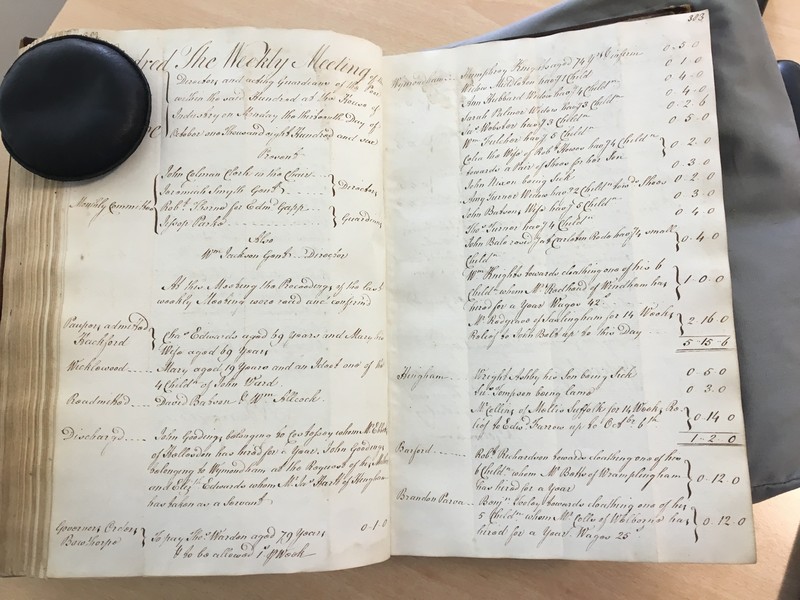 The Weekly Meeting of the
Directors and acting Guardians of the Poor
within the said Hundred at the House of
Industry on Monday the thirteenth Day of
October one Thousand eight Hundred and
Present
John Colman Clerk in the Chair
Jeremiah Smyth Gent. Directors
Monthly Committee
Robt. Thorne for Edmd. Gapp
Jessop Parke Guardians
Also
Wm. Jackson Gent. Director
At this Meeting the Proceedings of the last
weekly Meeting were read and confirm'd
Paupers admitted
Hackford Chas. Edwards aged 69 Years and Mary his
Wife aged 69 Years
Wicklewood Mary aged 19 Years and an Ideot one of the
4 Childn. of John Ward
Readmitted David Batson & Wm. Allcock
Discharg'd John Gooding belonging to Costessey whom Mr.
of Hellesdon has hired for a Year. John Gooding
belonging to Wymondham at the Request of his Mother
and Elizth. Edwards whom Mr. Jas. Hart of Hingham
has taken as a Servant
Governors Orders
Bowthorpe To pay Thos. Wardon aged 79 Years 0-1-0
& to be allowed 1s. pr Week
323
Wymondham Humphrey Knights aged 74 Yrs & infirm 0-5-0
Widow Middleton has 1 Child 0-1-0
Ann Hubbard Widow has 4 Childn. 0-4-0
Sarah Palmer Widow has 3 Childn. 0-4-0
Jas. Webster has 3 Childn. 0-2-6
Wm. Fulcher has 5 Childn. 0-5-0
Celia the Wife of Robt. Howes has 4 Childn.
towards a Pair of Shoes for her Son 0-2-0
John Nixon being Sick 0-3-0
Amy Turner Widow has 2 Childn. towds. Shoes 0-2-0
John Batsons Wife has 5 Childn. 0-3-0
Thos. Turner has 4 Childn. 0-4-0
John Bale resid'g at Carleton Rode has 4 small
Childn. 0-4-0
Wm. Knights towards cloathing one of his 6
Childn. whom Mr. of Windham has
hired for a Year Wages 42s. 1-0-0
Mr. of Saxlingham for 14 Weeks
Relief to John Bolt up to this Day 2-16-0
5-15-6
Hingham Wright Ashby his Leg being Sick 0-5-0
Jas. Tompson being Lame 0-3-0
Mr. Collen of Mellis Suffolk for 14 Weeks Re-
lief to Edwd. Farrow up to Octr. 6th. 0-14-0
1-2-0
Barford Robt. Richardson towards cloathing one of his
6 Childn. whom Mr. Batts of Wramplingham
has hired for a Year 0-12-0
Brandon Parva Benjn. towards cloathing one of her
5 Childn. whom Mr. Colls of has
hired for a Year. Wages 25s. 0-12-0